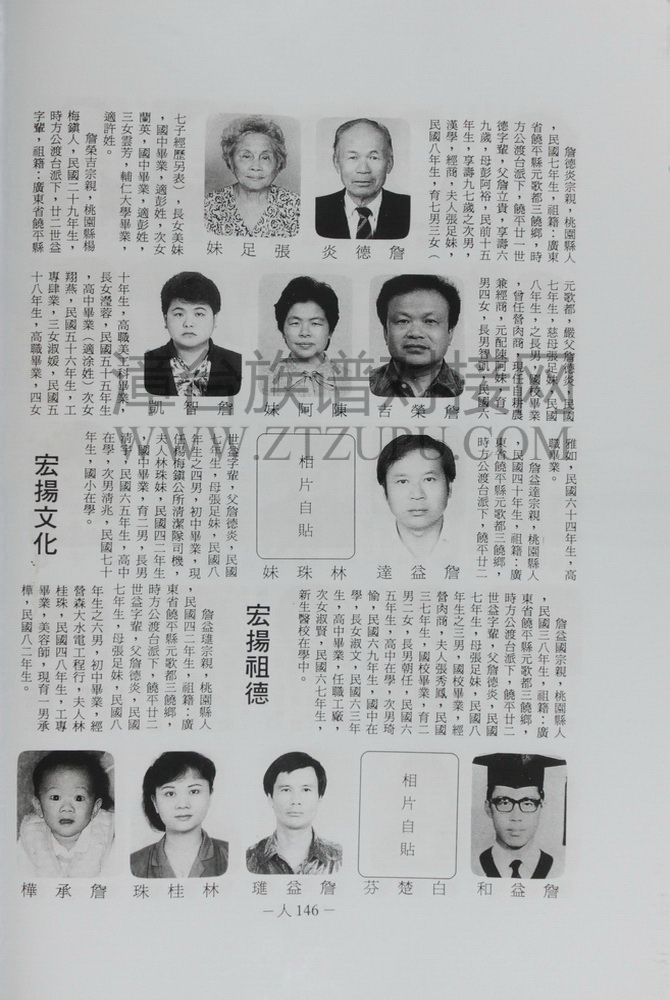 詹德炎宗親，桃園縣人
，民國七年生，祖籍：廣東
省饒平縣元歌都三饒鄉，時
方公渡台派下，饒平廿一世
德字輩，父詹立貴，享壽六
九歲，母彭阿裕，民前十五
年生，享壽九七歲之次男，
漢學，經商，夫人張足妹，
民國八年生，育七男三女（
詹德炎
張足妹
七子經歷另表），長女美妹
，國中畢業，適彭姓，次女
蘭英，國中畢業，適彭姓，
三女雲芳，輔仁大學畢業，
適許姓。
詹榮吉宗親，桃園縣楊
梅鎮人，民國二十九年生，
時方公渡台派下，廿二世益
字輩，祖籍：廣東省饒平縣
元歌都，嚴父詹德炎，民國
七年生，慈母張足妹，民國
八年生，之長男，國校畢業
，曾任營肉商，現任自耕農
兼經商，元配陳阿妹，育一
男四女，長男智凱，民國六
詹榮吉
陳阿妹
詹智凱
十年生，高職美工科畢業，
長女瀅蓉，民國五十五年生
，高中畢業（適涂姓）次女
翔燕，民國五十六年生，工
專肄業，三女淑媛，民國五
十八年生，高職畢業，四女
雅如，民國六十四年生，高
職畢業。
詹益達宗親，桃園縣人
，民國四十年生，祖籍：廣
東省饒平縣元歌都三饒鄉，
時方公渡台派下，饒平廿二
詹益達
相片自貼
林珠妹
世益字輩，父詹德炎，民國
七年生，母張足妹，民國八
年生之四男，初中畢業，現
任楊梅鎮公所清潔隊司機，
夫人林珠妹，民國四二年生
，國中畢業，育二男，長男
清宇，民國六五年生，高中
在學，次男清兆，民國七十
年生，國小在學。
宏揚文化
詹益國宗親，桃園縣人
，民國三八年生，祖籍：廣
東省饒平縣元歌都三饒鄉，
時方公渡台派下，饒平廿二
世益字輩，父詹德炎，民國
七年生，母張足妹，民國八
年生之三男，國校畢業，經
營肉商，夫人張秀鳳，民國
三七年生，國校畢業，育二
男二女，長男朝任，民國六
五年生，高中在學，次男琦
愉，民國六九年生，國中在
學，長女淑文，民國六三年
生，高中畢業，任職工廠，
次女淑賢，民國六七年生，
新生醫校在學中。
宏揚祖德
詹益璡宗親，桃園縣人
，民國四二年生，祖籍：廣
東省饒平縣元歌都三饒鄉，
時方公渡台派下，饒平廿二
世益字輩，父詹德炎，民國
七年生，母張足妹，民國八
年生之六男，初中畢業，經
營森大水電工程行，夫人林
桂珠，民國四八年生，工專
畢業，美容師，現育一男承
樺，民國八二年生。
詹益和
相片自貼
白楚芬
詹益璡
林桂珠
詹承樺
－人146－
WWW.ZTZUPU.COM